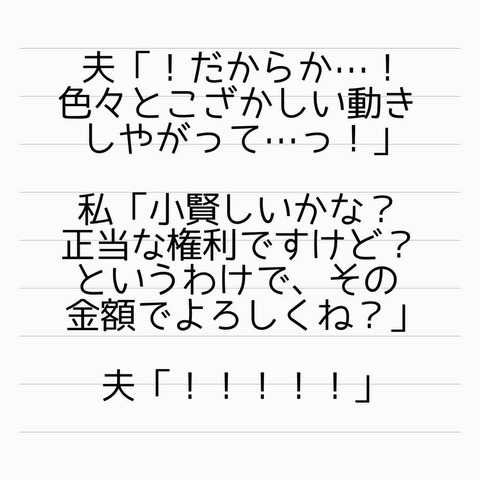 夫「！だからか…！
色々とこざかしい動き
しやがって…っ！」
私「小賢しいかな？
正当な権利ですけど？
というわけで、その
金額でよろしくね？」
夫「！！！！！」